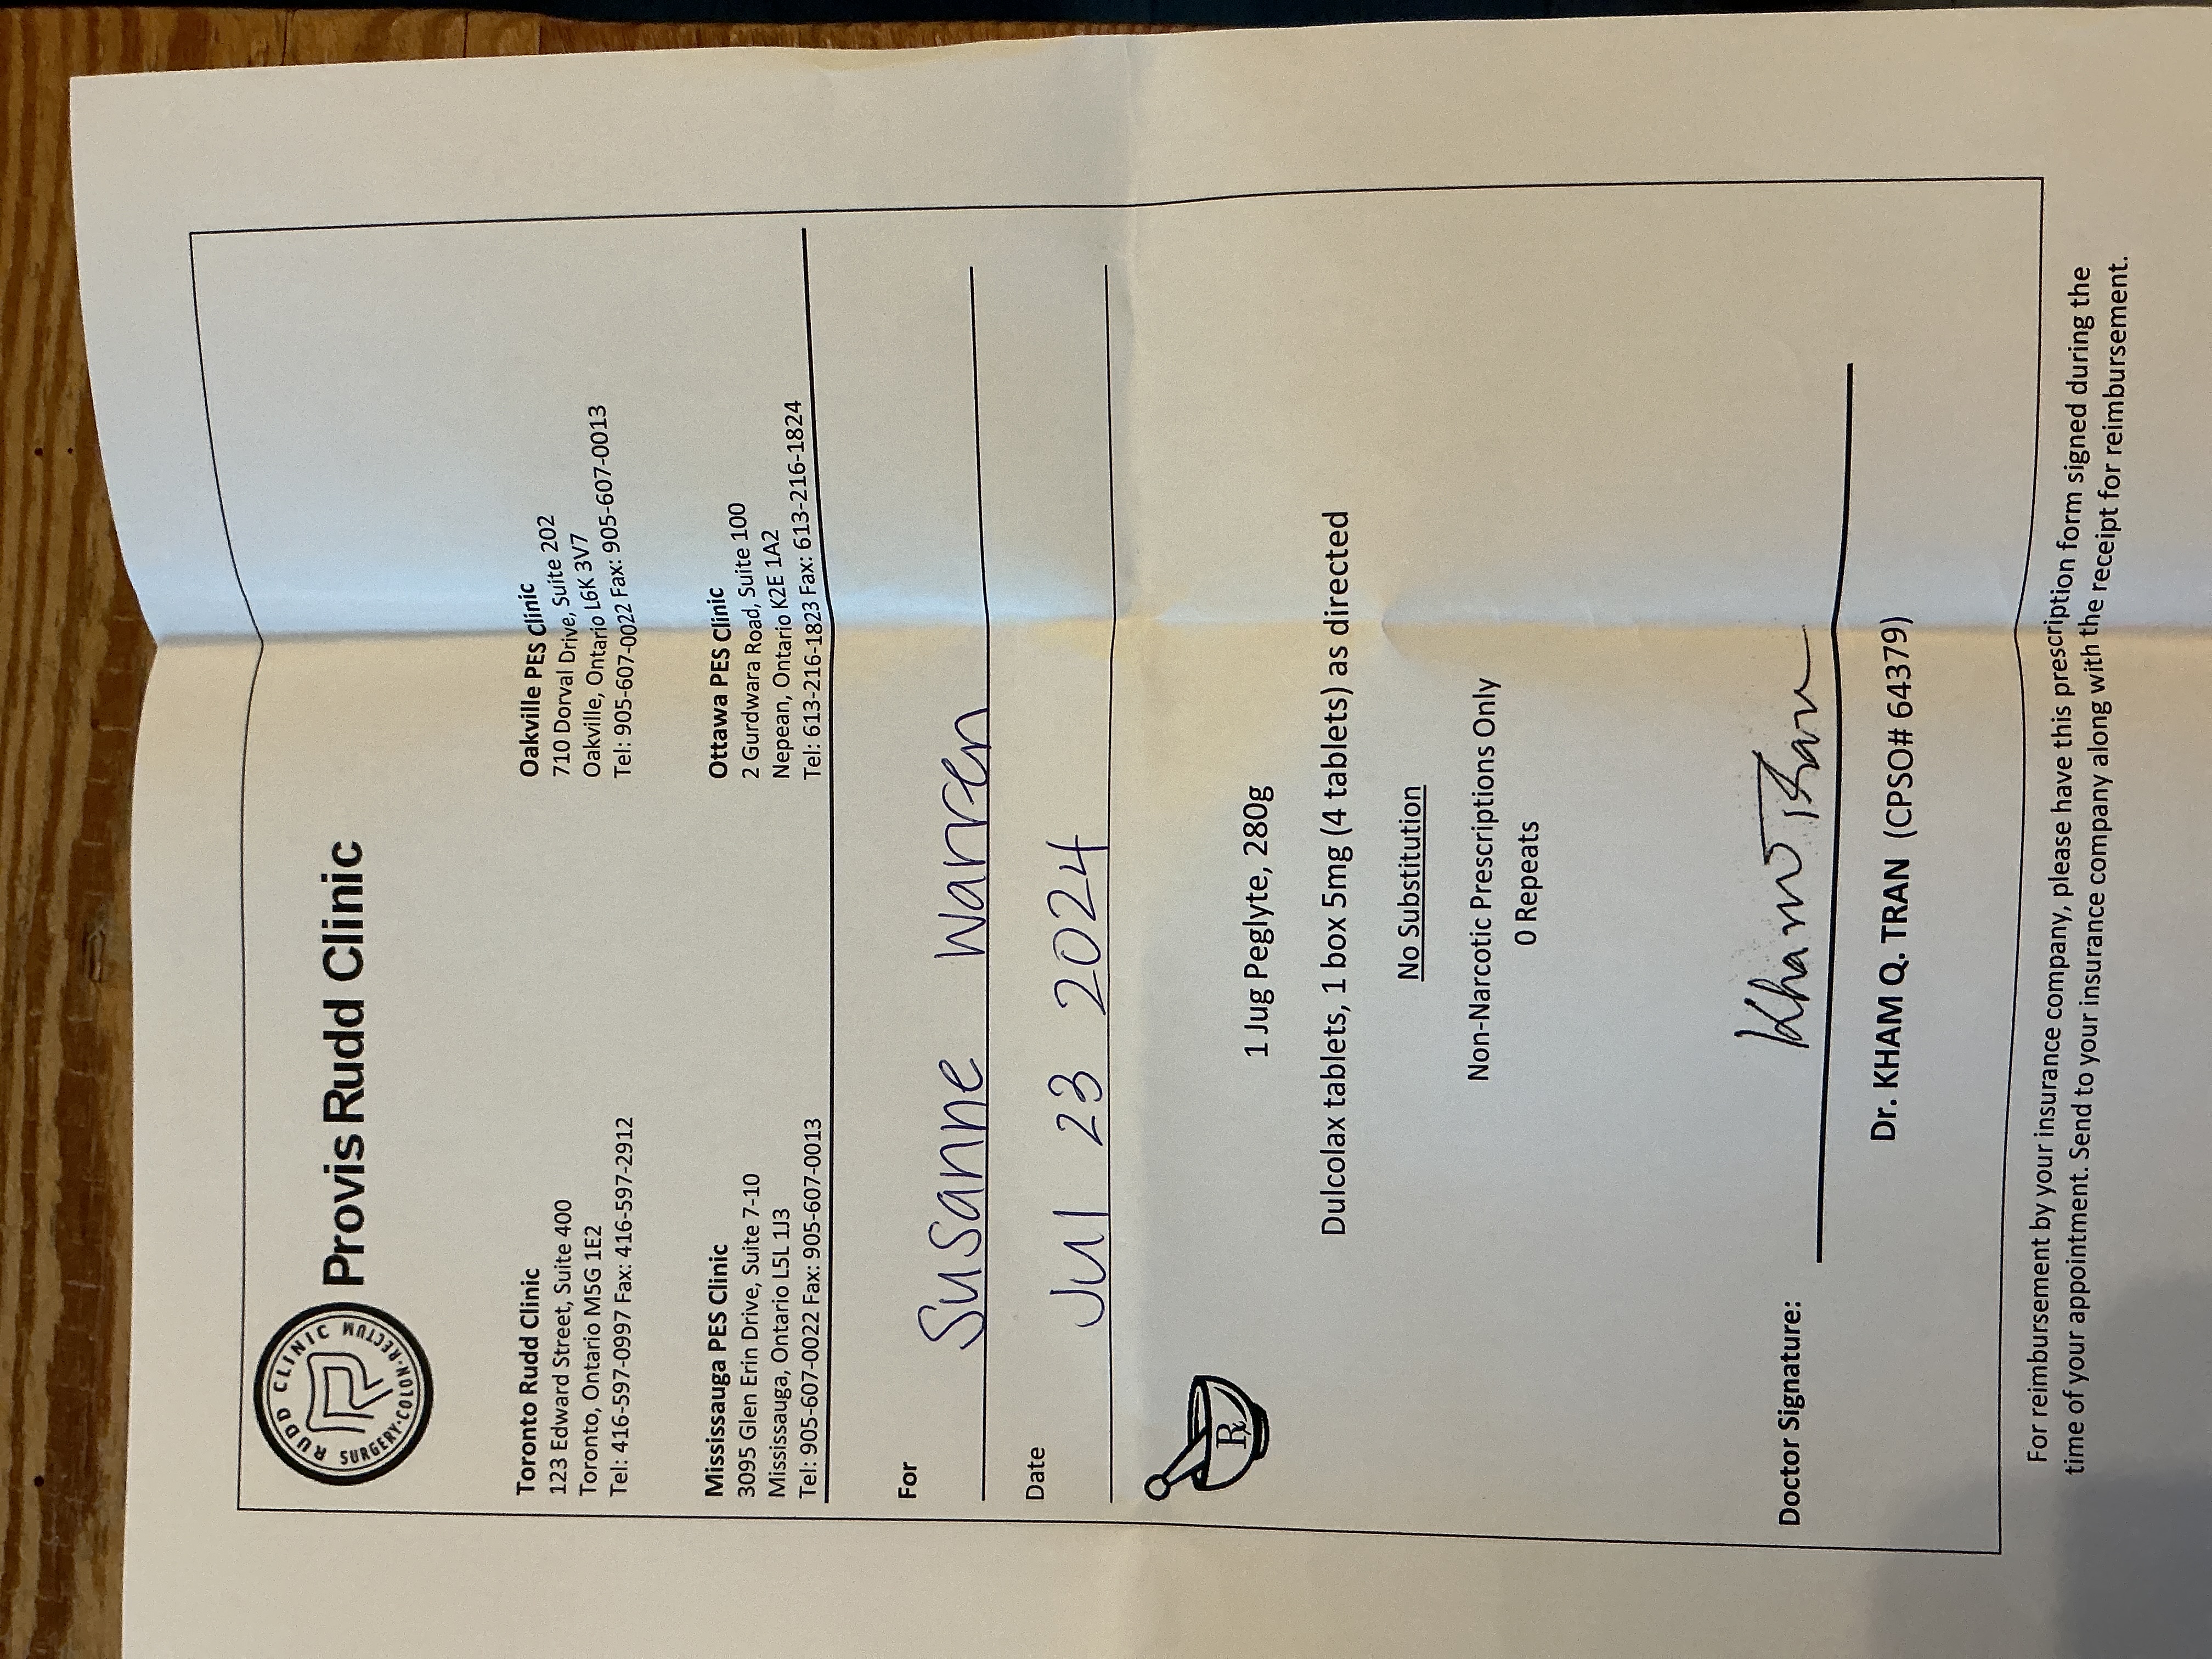 RUDD CLINIC
SURGERY·COLON·RECTUM
Provis Rudd Clinic
Toronto Rudd Clinic
123 Edward Street, Suite 400
Toronto, Ontario M5G 1E2
Tel: 416-597-0997 Fax: 416-597-2912
Oakville PES Clinic
710 Dorval Drive, Suite 202
Oakville, Ontario L6K 3V7
Tel: 905-607-0022 Fax: 905-607-0013
Mississauga PES Clinic
3095 Glen Erin Drive, Suite 7-10
Mississauga, Ontario L5L 1J3
Tel: 905-607-0022 Fax: 905-607-0013
Ottawa PES Clinic
2 Gurdwara Road, Suite 100
Nepean, Ontario K2E 1A2
Tel: 613-216-1823 Fax: 613-216-1824
For
Susanne Warren
Date
Jul 23 2024
Rx
1 Jug Peglyte, 280g
Dulcolax tablets, 1 box 5mg (4 tablets) as directed
No Substitution
Non-Narcotic Prescriptions Only
0 Repeats
Doctor Signature: Kham Tran
Dr. KHAM Q. TRAN (CPSO# 64379)
For reimbursement by your insurance company, please have this prescription form signed during the
time of your appointment. Send to your insurance company along with the receipt for reimbursement.